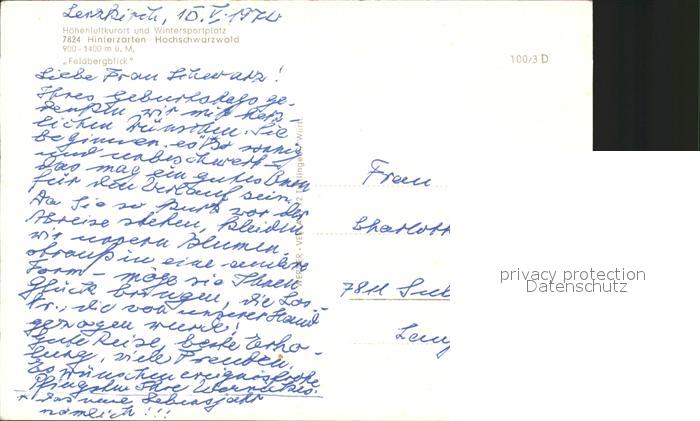 Lenzkirch, 10. V. 1974
Höhenluftkurort und Wintersportplatz
7824 Hinterzarten · Hochschwarzwald
900 - 1400 m ü. M.
„Feldbergblick"
100/3 D
Liebe Frau Schwarz!
Ihres Geburtstags ge-
denken wir mit herz-
lichen Wünschen. Sie
beginnen es so sonnig
und unbeschwert –
das mag ein gutes Omen
für den Verlauf sein.
Da Sie so kurz vor der
Abreise stehen, kleiden
wir unsern Blumen-
strauß in eine andere
Form – möge sie Ihnen
Glück bringen, die Los-
Nr., die von unserer Hand
gezogen wurde!
Gute Reise, beste Erho-
lung, viele Freuden.
Es wünschen ereignisfrohe
Pfingsten Ihre
* das neue Lebensjahr
nämlich!!!
Frau
Charlott
7811
privacy protection
Datenschutz